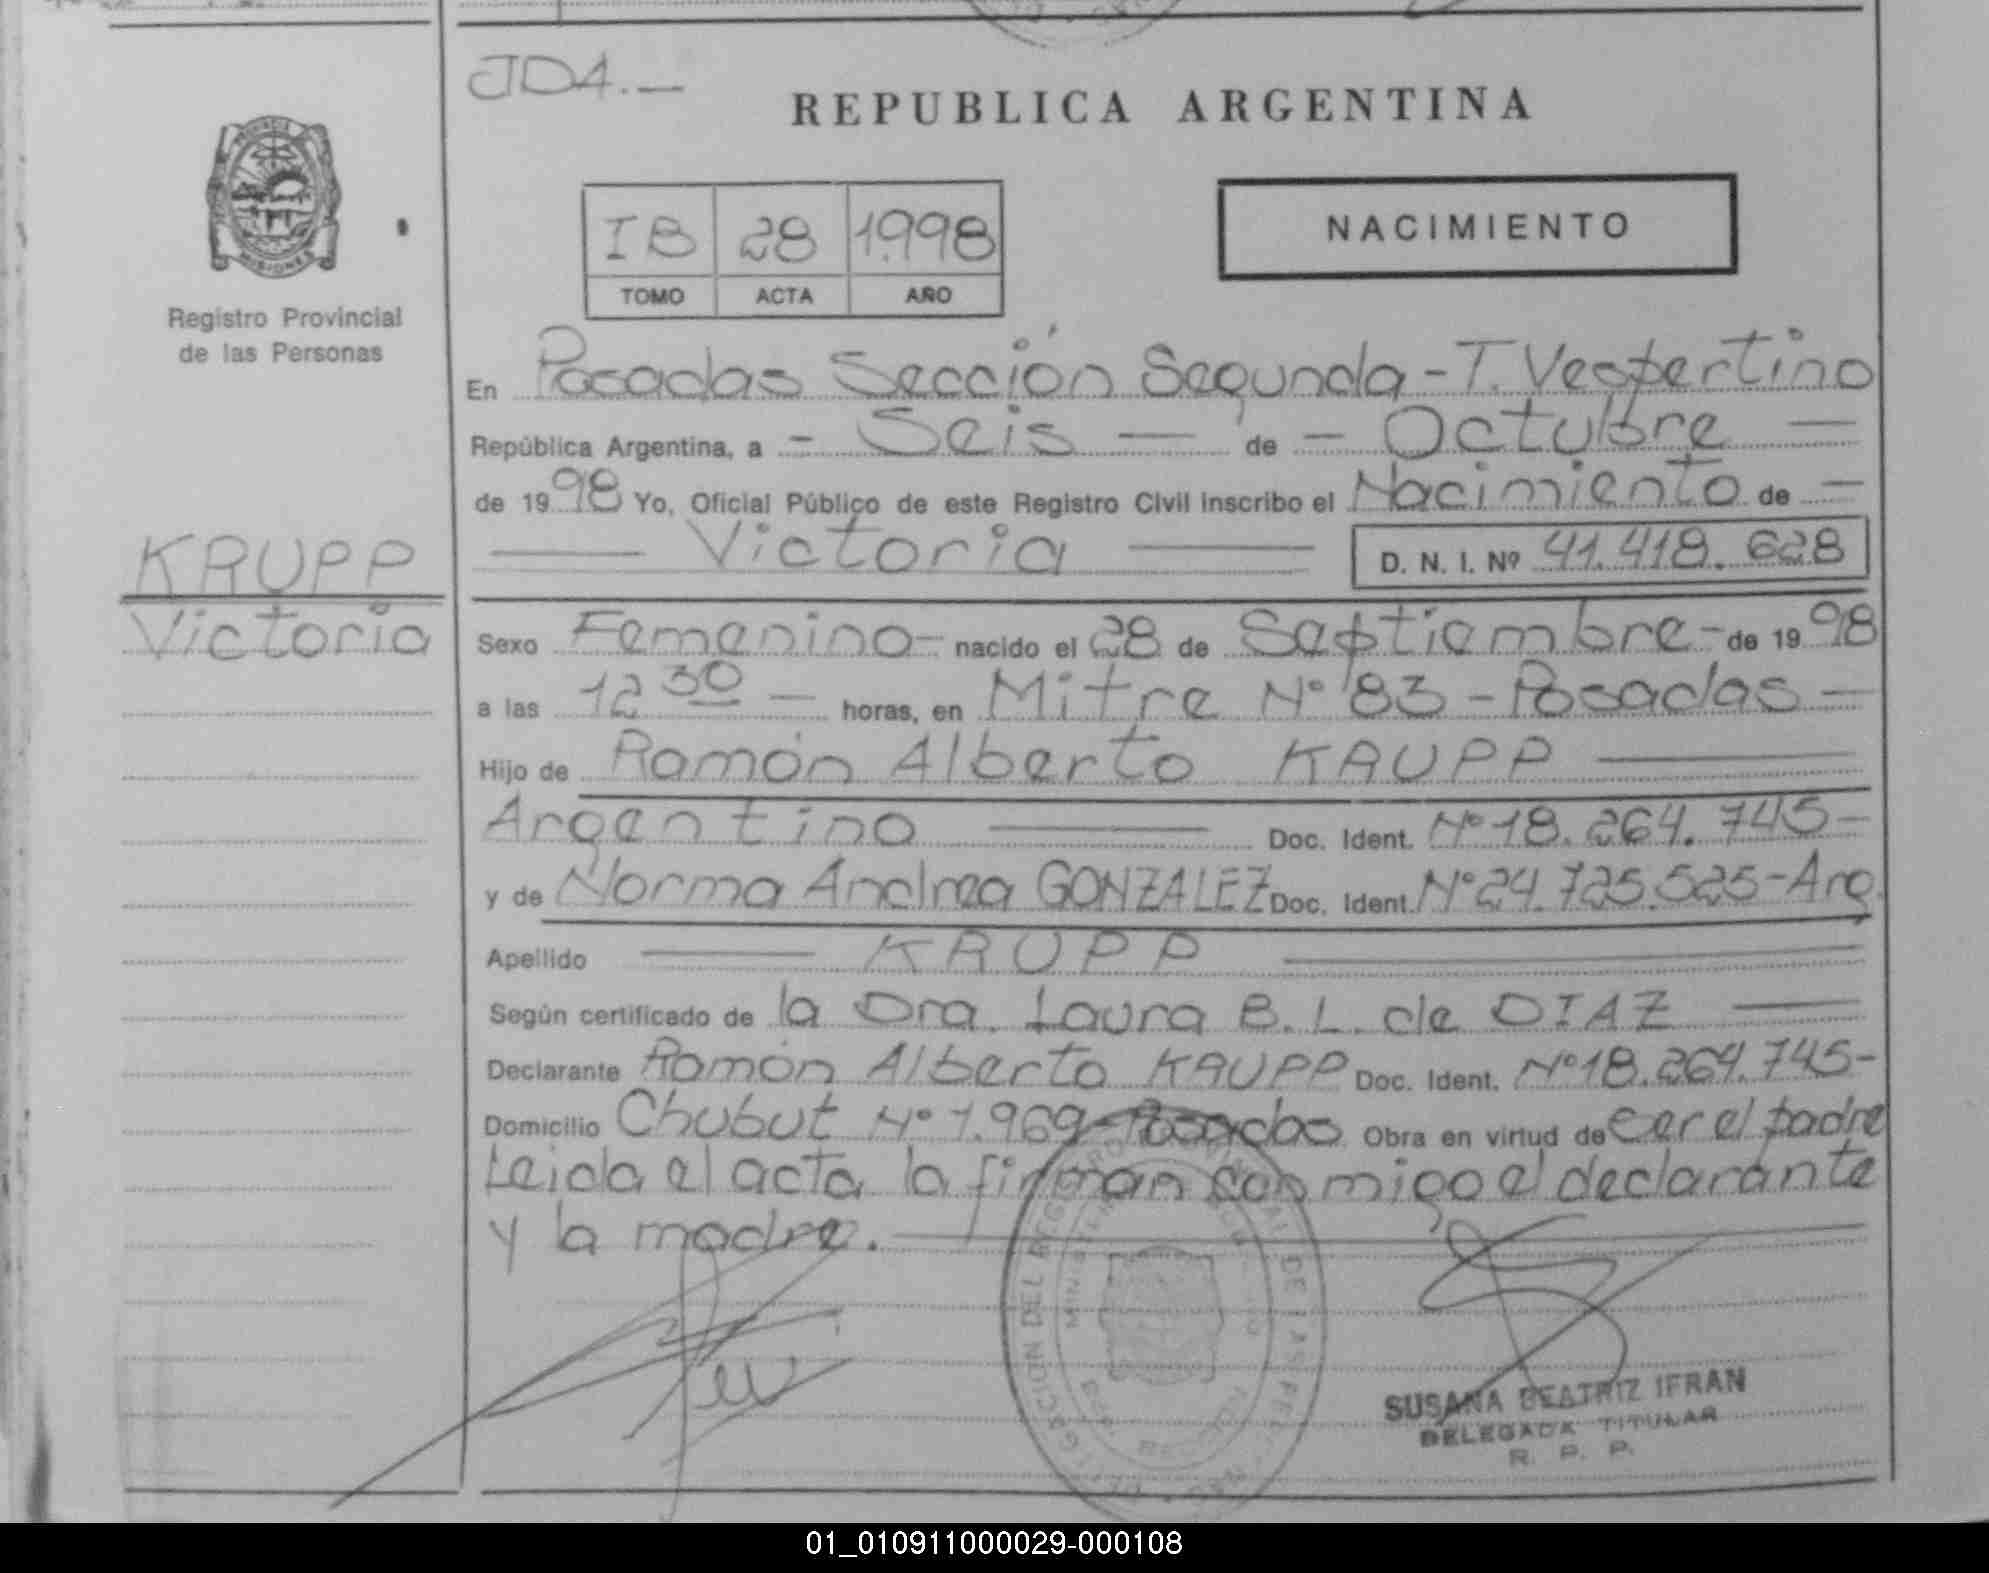 JD4.—
REPUBLICA ARGENTINA
PROVINCIA
MISIONES
Registro Provincial
de las Personas
I B 28 1.998
TOMO ACTA AÑO
NACIMIENTO
En Posadas Sección Segunda - T. Vespertino
República Argentina, a - Seis — de — Octubre —
de 19 98 Yo, Oficial Público de este Registro Civil inscribo el Nacimiento de —
— Victoria — D. N. I. Nº 41.418.628
KRUPP
Victoria
Sexo Femenino - nacido el 28 de Septiembre - de 19 98
a las 12 30 — horas, en Mitre Nº 83 - Posadas —
Hijo de Ramón Alberto KRUPP —
Argentino — Doc. Ident. Nº 18.264.745-
y de Norma Andrea GONZALEZ Doc. Ident. Nº 24.725.525-Arg.
Apellido — KRUPP —
Según certificado de la Dra. Laura B. L. de DIAZ —
Declarante Ramón Alberto KRUPP Doc. Ident. Nº 18.264.745-
Domicilio Chubut Nº 1.969-Posadas Obra en virtud de ser el padre
Leida el acta la firman conmigo el declarante
y la madre. —
SUSANA BEATRIZ IFRAN
DELEGADA TITULAR
R. P. P.
01_010911000029-000108